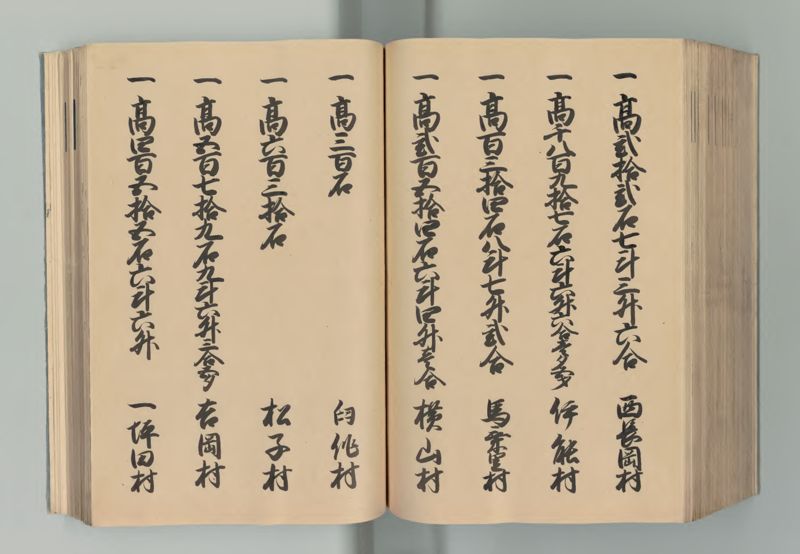 一高弐拾弐石七斗三升六合 西長岡村
一高千八百九拾七石六斗六升六合 伊能村
一高百三拾四石八斗七升弐合 馬乗里村
一高弐百五拾四石六斗四升壱合 横山村
一高三百石 臼作村
一高六百三拾石 松子村
一高五百七拾九石九斗六升三合 吉岡村
一高四百五拾五石六斗六升 一坪田村